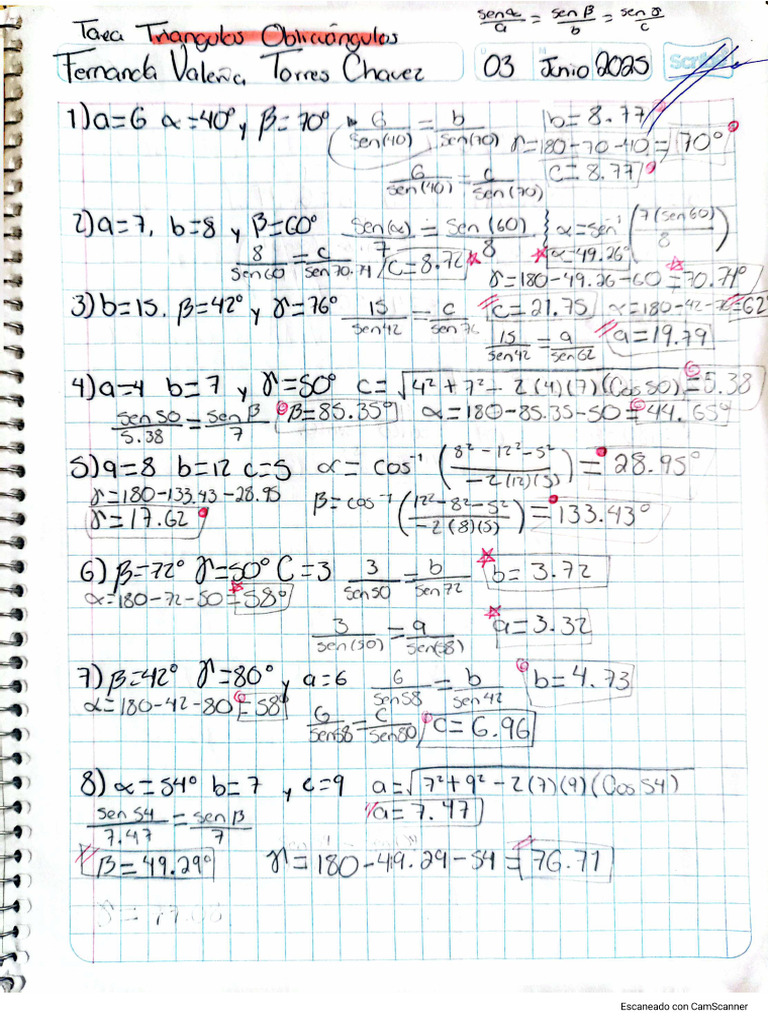 sen α/a = sen β/b = sen γ/c
Tarea Triangulos Oblicuángulos
Fernanda Valeria Torres Chavez 03 Junio 2025 Scribe
1) a=6 α=40° y β=70° 6/sen(40) = b/sen(70) b=8.77
γ=180-70-40= 70°
6/sen(40) = c/sen(70) c=8.77
2) a=7, b=8 y β=60° sen(α)/7 = sen(60)/8 } α=sen⁻¹(7(sen60)/8)
8/sen60 = c/sen70.74 / c=8.72 α=49.26°
γ=180-49.26-60=70.74°
3) b=15. β=42° y γ=76° 15/sen42 = c/sen76 c=21.75 α=180-42-76=62°
15/sen42 = a/sen62 a=19.79
4) a=4 b=7 y γ=50° c=√4²+7²-2(4)(7)(Cos50)=5.38
sen50/5.38 = senβ/7 β=85.35° α=180-85.35-50=44.65°
5) a=8 b=12 c=5 α=cos⁻¹(8²-12²-5²/-2(12)(5))=28.95°
γ=180-133.43-28.95 β=cos⁻¹(12²-8²-5²/-2(8)(5))=133.43°
γ=17.62
6) β=72° γ=50° C=3 3/sen50 = b/sen72 b=3.72
α=180-72-50=58°
3/sen(50) = a/sen(58) a=3.32
7) β=42° γ=80° y a=6 6/sen58 = b/sen42 b=4.73
α=180-42-80=58°
6/sen58 = c/sen80 / c=6.96
8) α=54° b=7 y c=9 a=√7²+9²-2(7)(9)(Cos54)
a=7.47
sen54/7.47 = senβ/7
β=49.29° γ=180-49.29-54=76.71
Escaneado con CamScanner